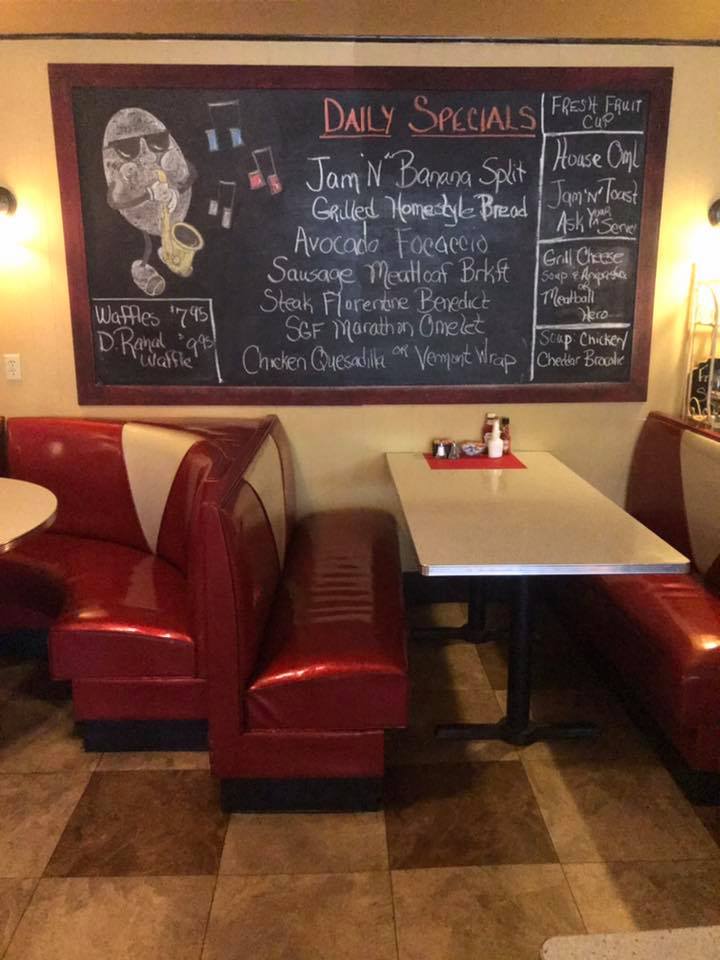 DAILY SPECIALS
Jam "N" Banana Split
Grilled Homestyle Bread
Avocado Focaccia
Sausage Meatloaf Brkft
Steak Florentine Benedict
SGF Marathon Omelet
Chicken Quesadilla or Vermont Wrap
Waffles $7.95
D. Royal $9.95
Waffle
FRESH FRUIT
CUP
House Oml
Jam "N" Toast
Ask your Server
Grill Cheese
Soup
or
Meatball
Hero
Soup Chicken/
Cheddar